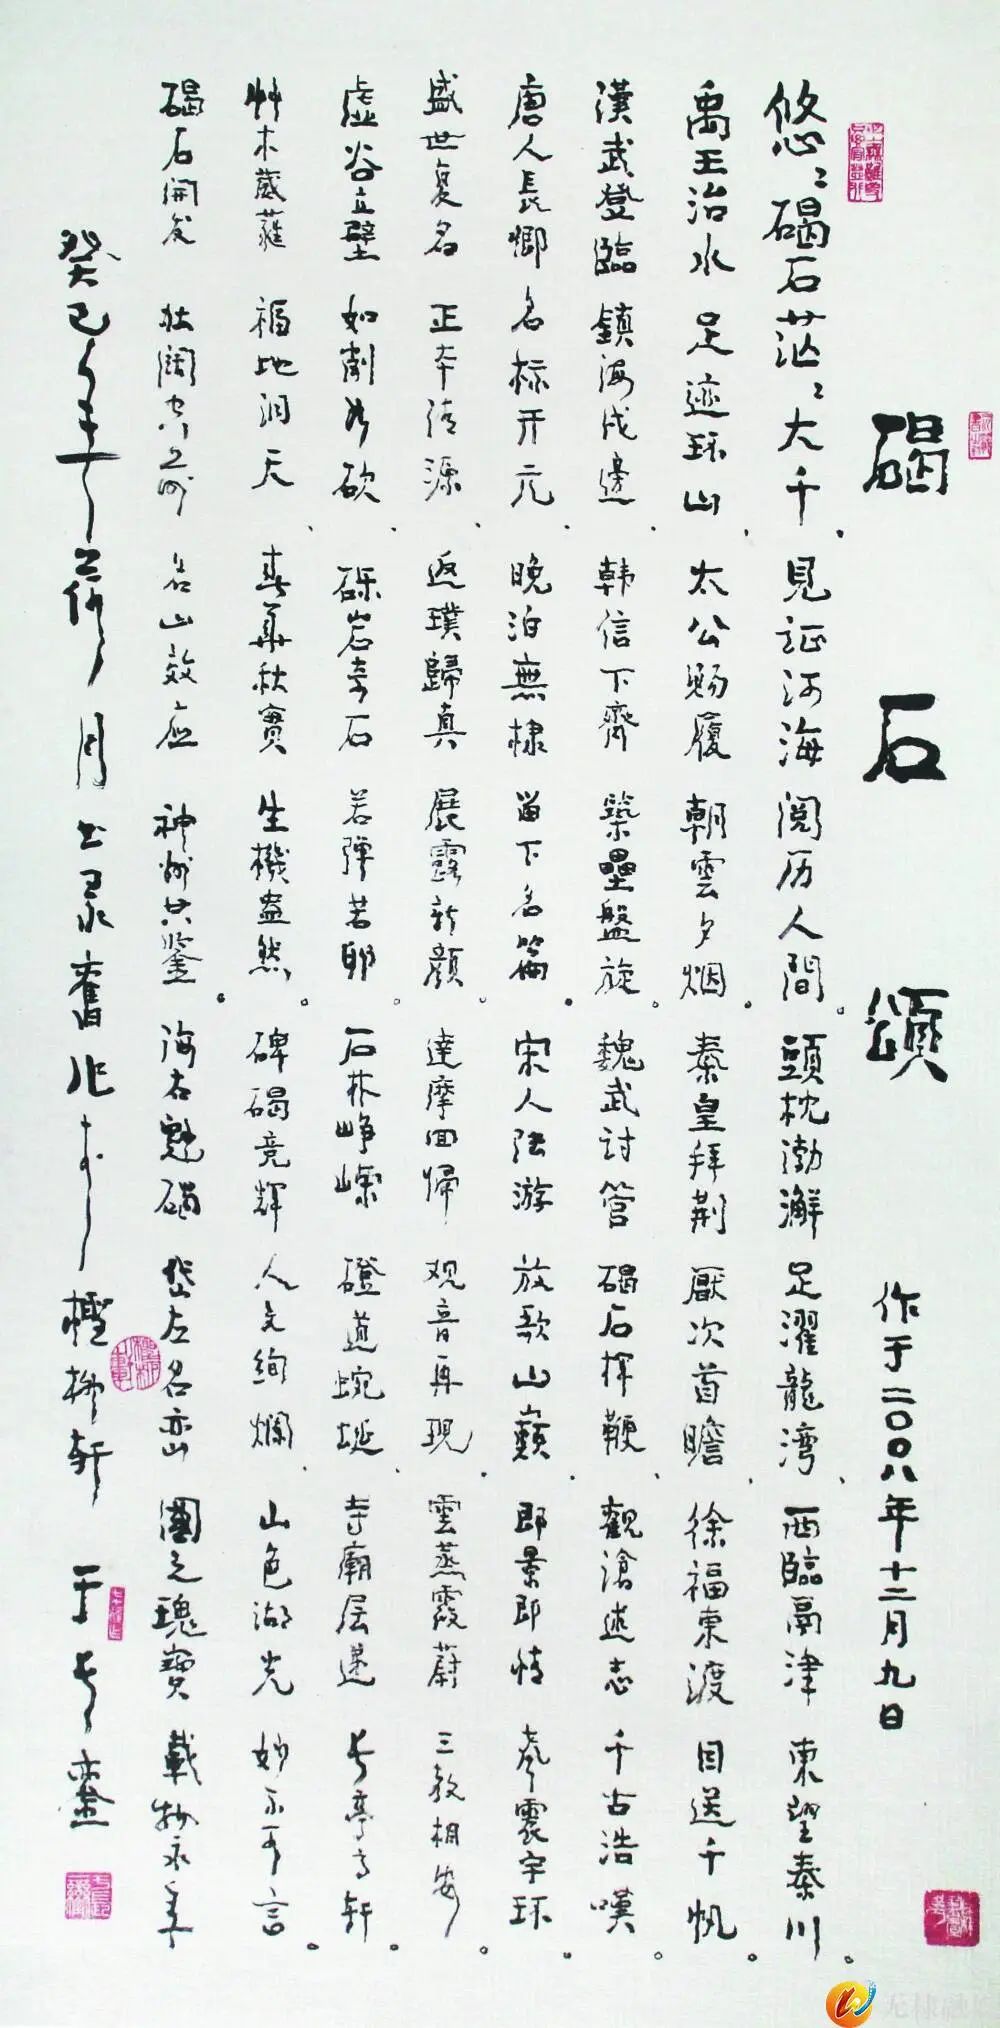 碣石頌
作于二〇〇八年十二月九日
悠〻碣石茫〻大千見证河海閲历人間頭枕渤澥足濯龍湾西臨鬲津東望秦川
禹王治水足迹环山太公賜履朝雲夕烟秦皇拜荆厭次首瞻徐福東渡目送千帆
漢武登臨鎮海戍邊韩信下齊築壘盤旋魏武討管碣石揮鞭觀滄述志千古浩嘆
唐人長卿名标开元晚泊無棣留下名篇宋人張游放歌山巔即景即情声震宇环
盛世复名正本清源返璞歸真展露新顔達摩回帰观音再現雲蒸霞蔚三教相安
虚谷立壁如削如砍砾岩奇石若弹若卵石林峥嵘磴道蜿蜒寺廟层遞长亭高轩
艸木葳蕤福地洞天春華秋實生機盎然碑碣竞輝人文绚爛山色湖光妙不可言
碣石開发壮阔空前名山效应神州共鉴海右魁碣岱左名峦國之瑰寶載物永年
癸巳年荷月书录舊作于檉柳轩于长銮
无棣融